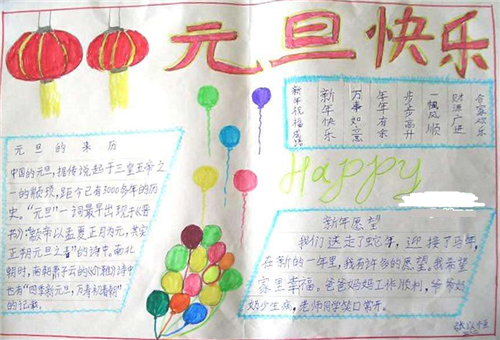 元旦快乐
新年祝福成语
新年快乐
万事如意
年年有余
步步高升
一帆风顺
财源广进
合家欢乐
元旦的来历
中国的元旦,据传说起于三皇五帝之
一的颛顼,距今已有3000多年的历
史。“元旦”一词最早出现于《晋
书》:“颛帝以孟夏正月为元,其实
正朔元旦之春”的诗中。南北
朝时,南朝萧子云的《介雅》诗中
也有“四季新元旦,万寿初春朝”
的记载。
Happy
新年愿望
我们送走了蛇年,迎接了马年,
在新的一年里,我有许多的愿望。我希望
家里幸福。爸爸妈妈工作顺利,爷爷奶
奶少生病,老师同学笑口常开。